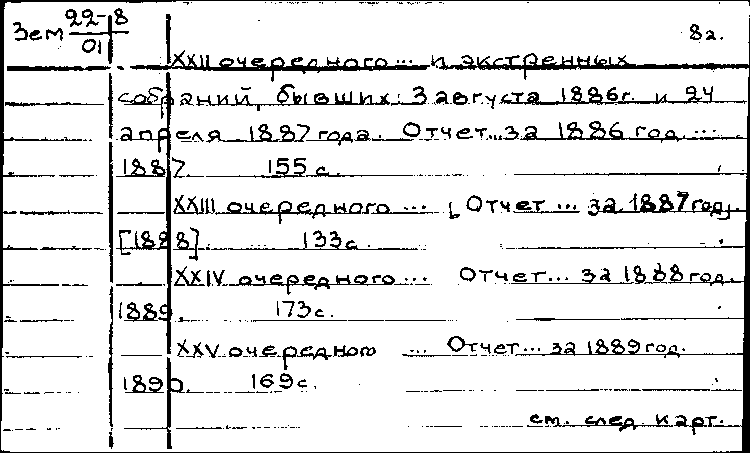 Зем 22-8 8а.
01
XXII очередного ... и экстренных
собраний, бывших: 3 августа 1886г. и 24
апреля 1887 года. Отчет... за 1886 год ...
1887. 155 с.
XXIII очередного ... Отчет ... за 1887 год.
[1888]. 133 с.
XXIV очередного ... Отчет... за 1888 год.
1889. 173 с.
XXV очередного ... Отчет... за 1889 год.
1890. 169 с.
см. след карт.